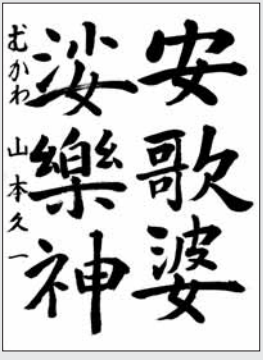 安歌婆
娑樂神
むかわ 山本久一